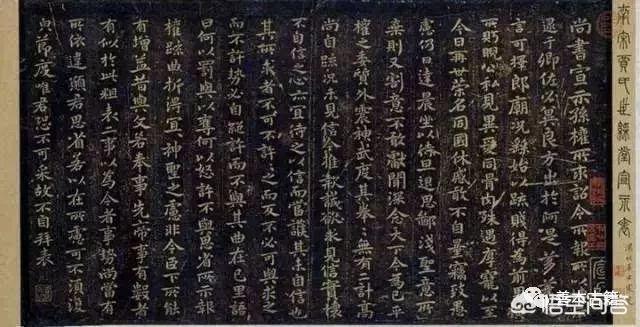 南宋賈氏世綵堂宣示表
尚書宣示孫權所求詔令所報所以博示
逮于卿佐必冀良方出於阿是芻蕘之
言可擇郎廟況繇始以疏賤得為前恩橫
所眄睨公私見異愛同骨肉殊遇厚寵以至
今日再世榮名同國休慼敢不自量竊致愚
慮仍日達晨坐以待旦退思鄙淺聖意所
棄則又割意不敢獻聞深念天下今為已平
權之委質外震神武度其拳拳無有二計高
尚自疏況未見信今推款誠欲求見信實懷
不自信之心亦宜待之以信而當護其未自信也
其所求者不可不許許之而反不必可與求之
而不許勢必自絕許而不與其曲在己里語
曰何以罰與以奪何以怒許不與思省所示報
權疏曲折得宜宜神聖之慮非今臣下所能
有增益昔與文若奉事先帝事有數者
有似於此粗表二事以為今者事勢尚當有
所依違願君思省若以在所慮可不須復
白節度唯君恐不可采故不自拜表
悟空问答
善本古籍